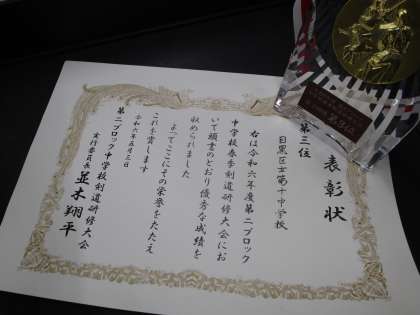 表彰状
第三位
目黒区立第十中学校
右は令和六年度第二ブロック
中学校春季剣道研修大会にお
いて頭書のとおり優秀な成績を
収められました
よってここにその栄誉をたたえ
これを賞します
令和六年五月三日
第二ブロック中学校剣道研修大会
実行委員長 並木翔平